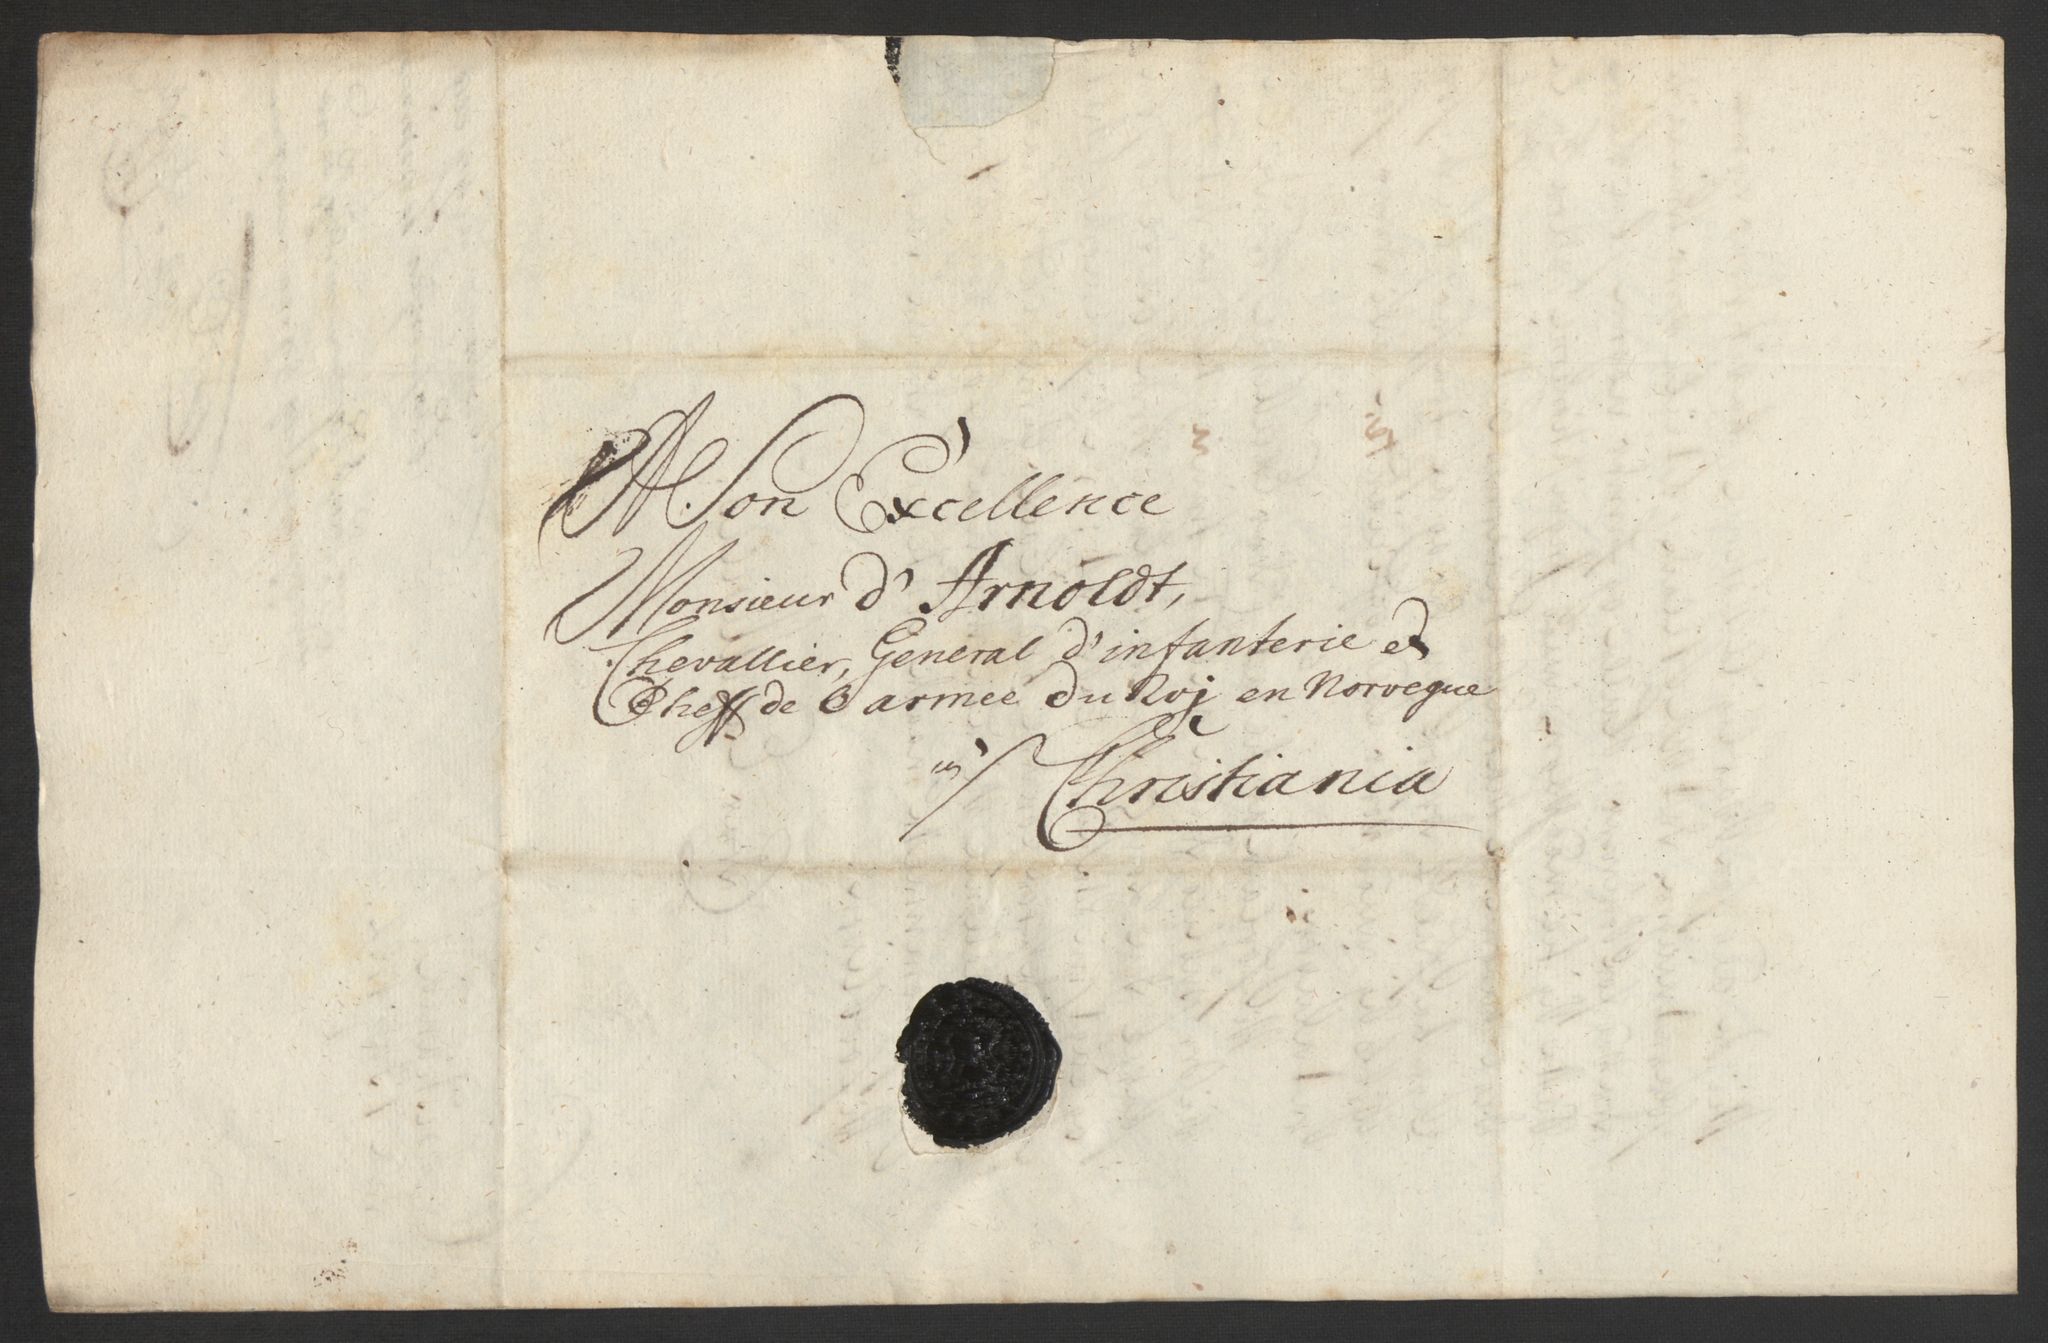 A Son Excellence
Monsieur d' Arnoldt,
Chevallier, General d'infanterie et
Cheff de l'armee du Roj en Norvegue
à
Christiania